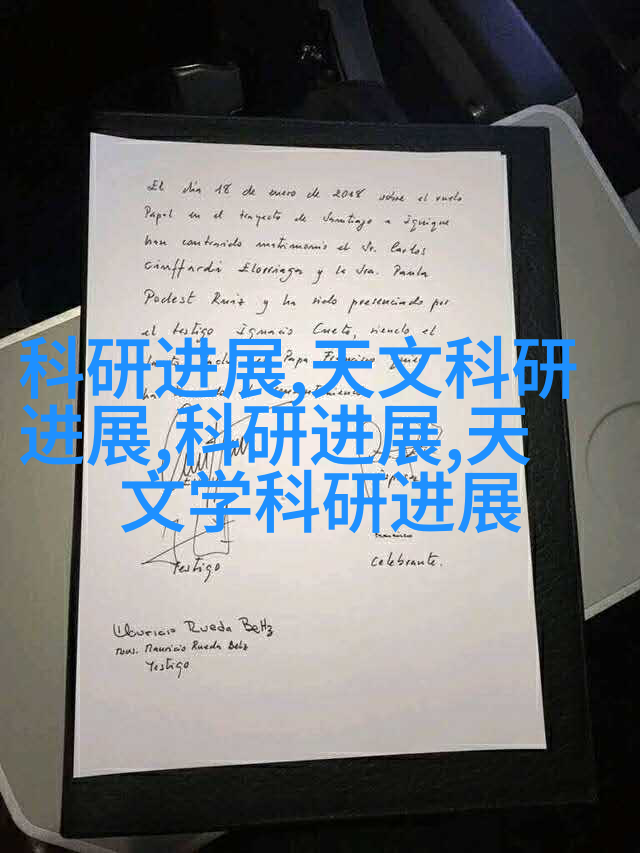 El día 18 de enero de 2018 sobre el vuelo
Papal en el trayecto de Santiago a Iquique
han contraido matrimonio el Sr. Carlos
Ciuffardi Elorriaga y la Sra. Paula
Podest Ruiz y ha sido presenciado por
el testigo Ignacio Cueto, siendo el
Papa Francisco quien
科研进展,天文科研
进展,科研进展,天
文学科研进展
Testigo
Celebrante.
Mauricio Rueda Beltz
Mons. Mauricio Rueda Beltz
Testigo